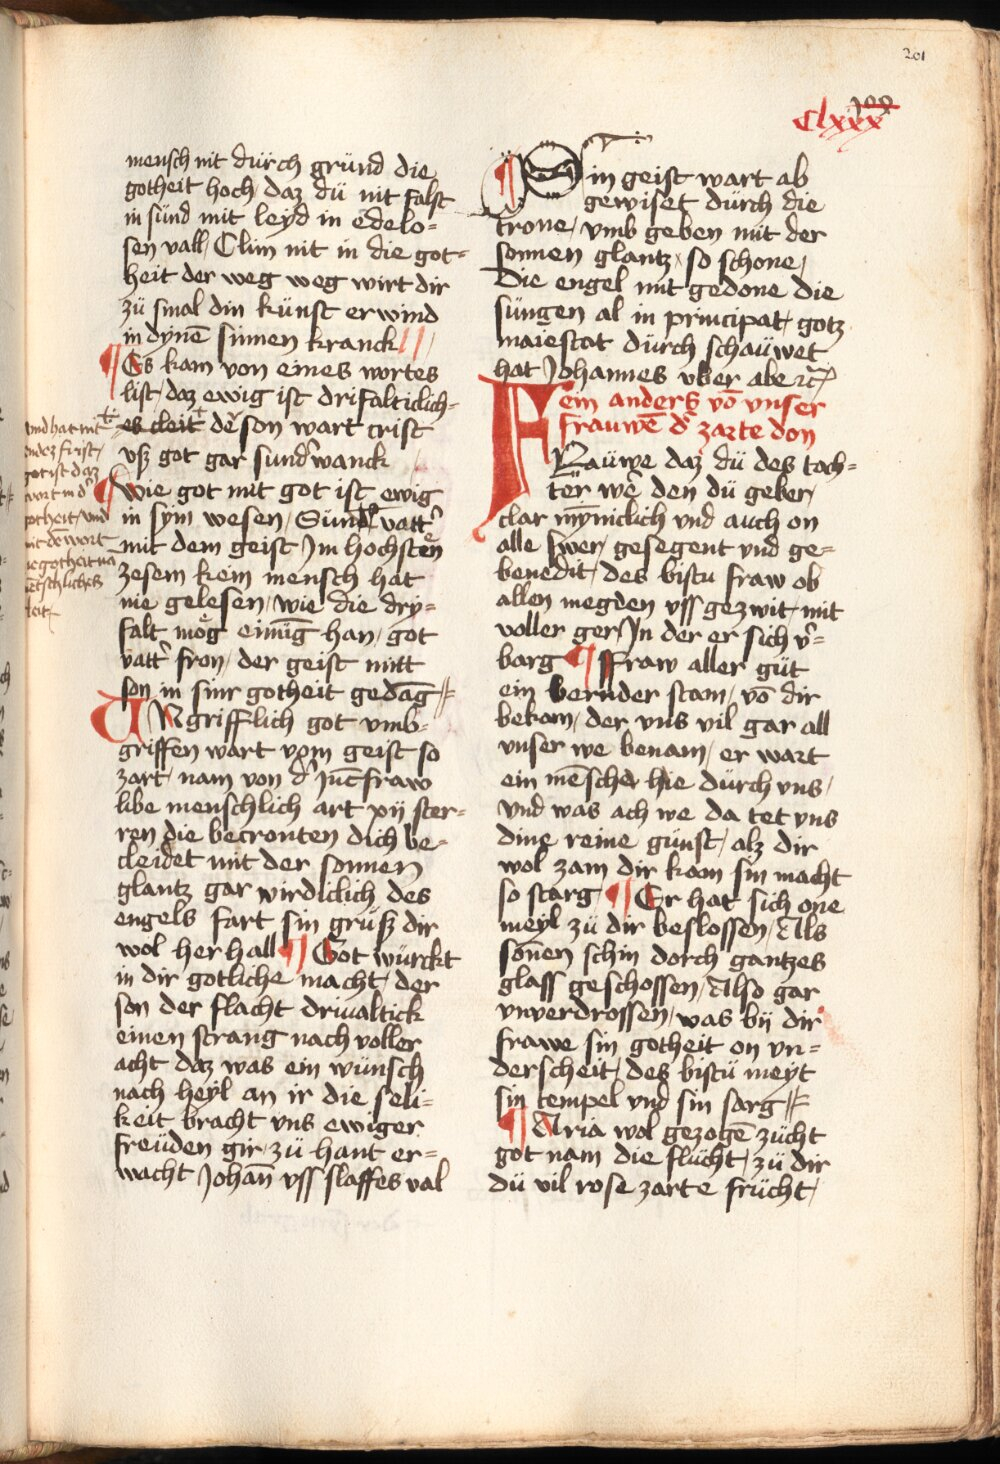 201
Clxxx
mensch nit dürch gründ die
gotheit hoch / daz dü nit falst
in sünd mit leyd in edelo=
sen vall / Clim nit in die got=
heit der weg weg wirt dir
zü smal din künst erwind
in dynē sinnen kranck
¶ Es kam von eines wortes
list / daz ewig ist drifalticlich=
es cleit der son wart crist
vß got gar sunder wanck
vnd hat nit
endez first /
got ist daz
wort in der
gotheit / vnd
nit dē wort
cleit
¶ Wie got mit got ist ewig
in sym wesen / Sünd vatter
mit dem geist Im hochsten
zesem kein mensch hat
nie gelesen / wie die dry=
falt mög einüg han / got
vatter fron / der geist mitt
son in sinr gotheit gedāg
VNgrifflich got vmb=
griffen wart vom geist so
zart / nam von der Jūcfraw
libe menschlich art xij ster=
ren die becronten dich be=
cleidet mit der sonnen
glantz gar wirdiclich des
engels fart sin grüß dir
wol her hall ¶ Got würckt
in dir gotliche macht / der
son der flacht driualtick
einen strang nach voller
acht daz was ein wünsch
nach heyl an ir die seli=
keit bracht vns ewiger
freüden gir / zü hant er=
wacht Johañ vss slaffes val
¶ Sin geist wart ab
gewiset dürch die
trone / vmb geben mit der
sonnen glantz so schone /
Die engel mit gedone die
süngen al in principat / gotz
maiestat dürch schaüwet
hat Johannes vber abe rc
Fein anders vō vnser
frauwē der zarte don
Raüwe daz dü des toch=
ter wē den dü geber /
clar mȳniclich vnd auch on
alle swer / gesegent vnd ge=
benedit / des bistu fraw ob
allen megden vss gezwit / mit
voller ger / In der er sich v=
barg ¶ ffraw aller güt
ein bernder stam / vō dir
bekam / der vns vil gar all
vnser we benam / er wart
ein mēscher hie dürch vns /
vnd was ach we da tet vns
dine reine günst / alz dir
wol zam dir kam sin macht
so starg ¶ Er hat sich one
meyl zü dir beslossen / Als
soñen schin dorch gantzes
glass geschossen / Also gar
vnverdrossen / was bij dir
frawe sin gotheit on vn=
derscheit / des bistü meyt
sin tempel vnd sin sarg
¶ Aria wol gezogē zücht
got nam die flücht / zü dir
dü vil rose zarte frücht /